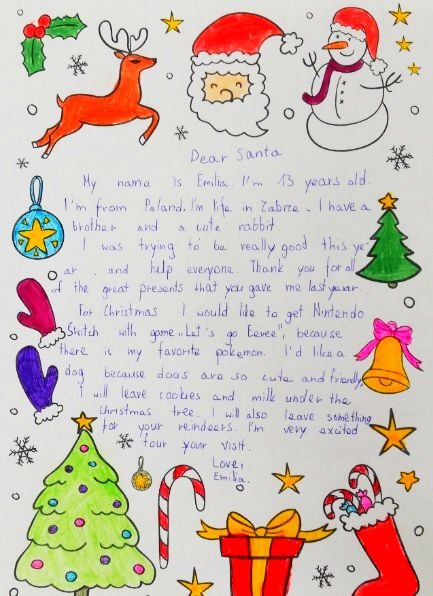 Dear Santa
My name is Emilia. I'm 13 years old.
I'm from Poland. I'm life in Zabrze. I have a
brother and a cute rabbit
I was trying to be really good this ye-
ar. and help everyone. Thank you for all
of the great presents that you gave me last year.
For Christmas I would like to get Nintendo
Switch with game „Let's go Eevee", because
there is my favorite pokemon. I'd like a
dog because dogs are so cute and friendly.
I will leave cookies and milk under the
Christmas tree. I will also leave something
for your reindeers. I'm very excited
four your visit.
Love,
Emilia.